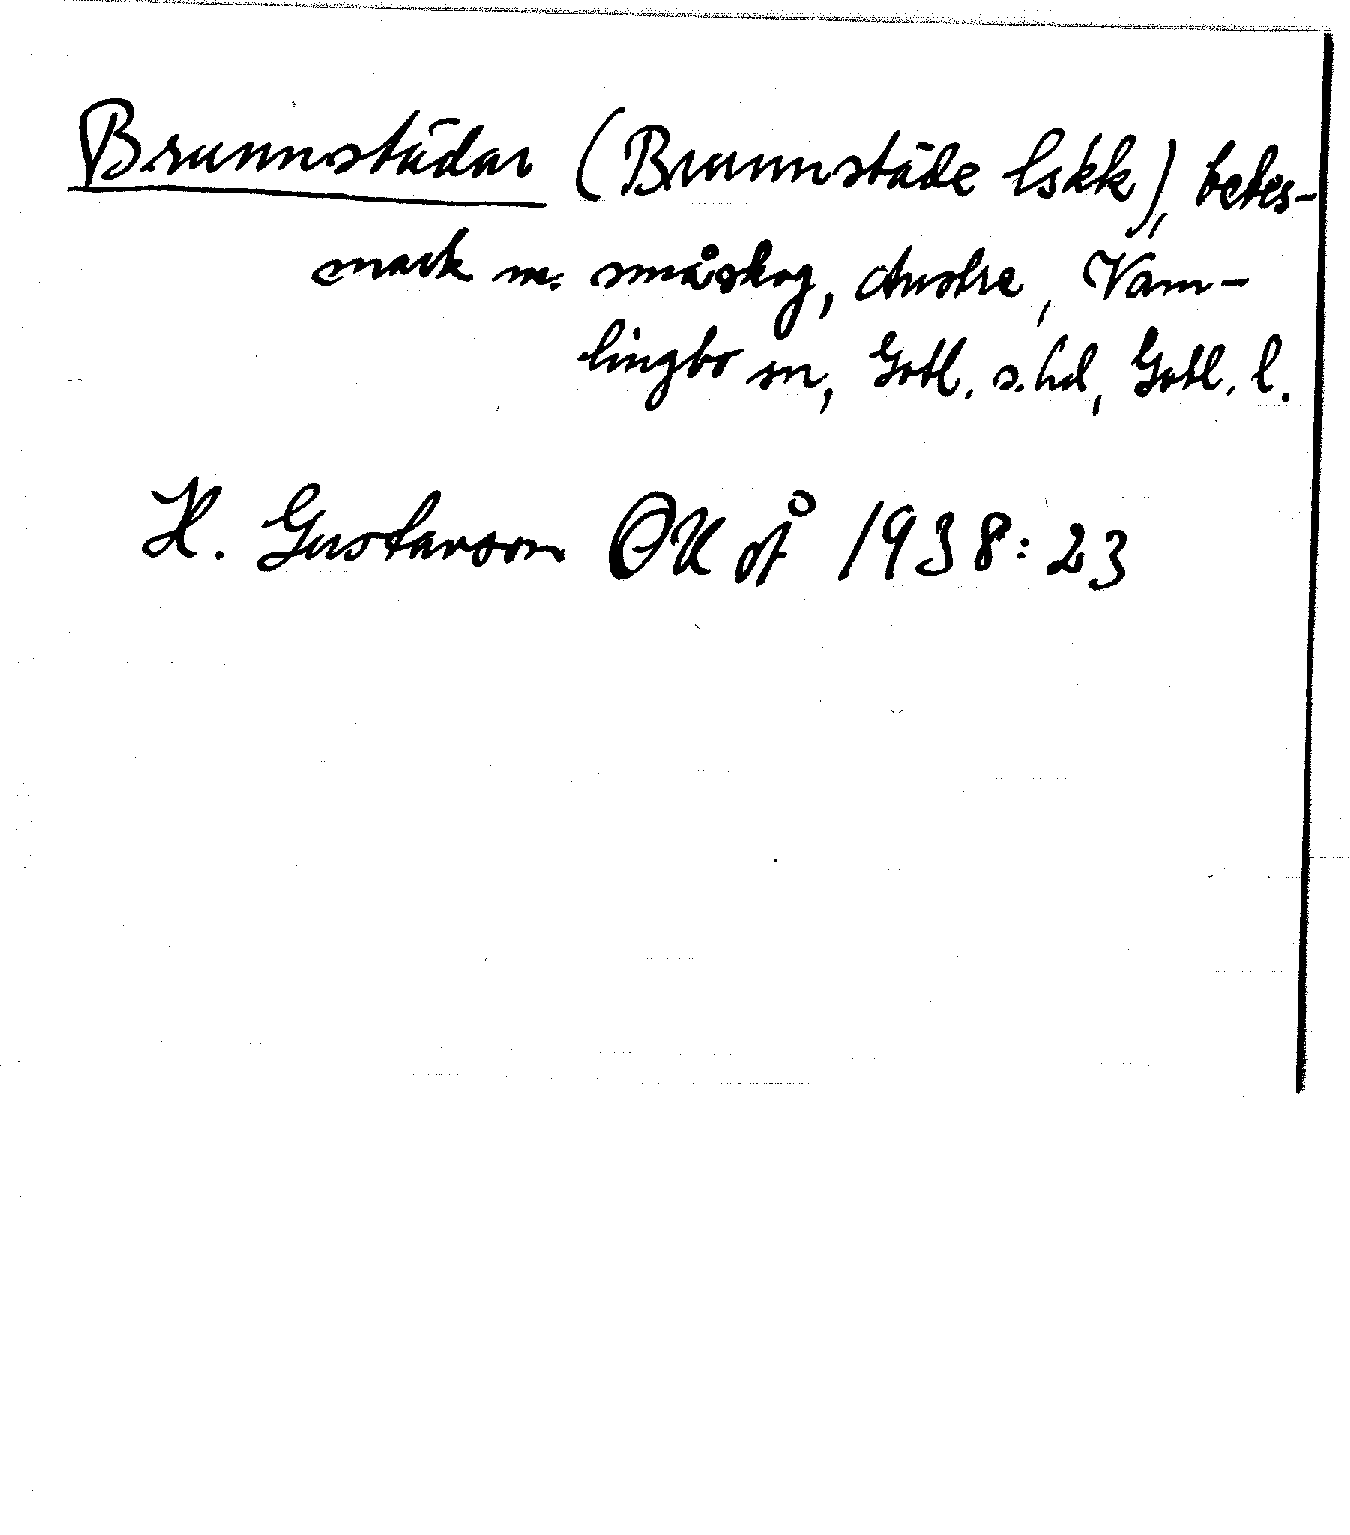 Brunnstädar (Brunnstäde lskk), betes-
mark m. småskog, Austre, Vam-
lingbo sn, Gotl. s. hd, Gotl. l.
H. Gustavson OK 1938:23